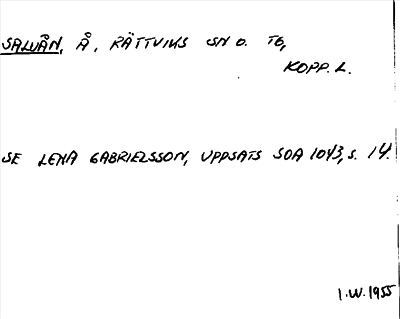 SALUÅN, Å, RÄTTVIKS SN O. TG,
KOPP. L.
SE LENA GABRIELSSON, UPPSATS SOA 1043, S. 14.
I.W. 1955